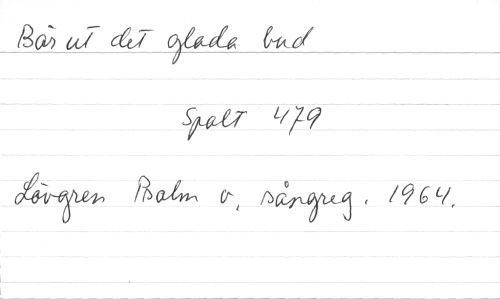 Bär ut det glada bud
Spalt 479
Lövgren Psalm o. sångreg. 1964.